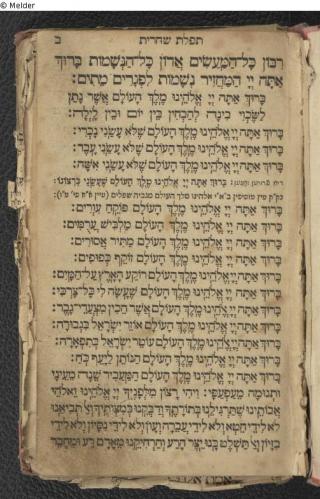 © Melder
תפלת שחרית ב
רִבּוֹן כָּל־הַמַּעֲשִׂים אֲדוֹן כָּל־הַנְּשָׁמוֹת בָּרוּךְ
אַתָּה יְיָ הַמַּחֲזִיר נְשָׁמוֹת לִפְגָרִים מֵתִים:
בָּרוּךְ אַתָּה יְיָ אֱלֹהֵינוּ מֶלֶךְ הָעוֹלָם אֲשֶׁר נָתַן
לַשֶּׂכְוִי בִינָה לְהַבְחִין בֵּין יוֹם וּבֵין לָיְלָה:
בָּרוּךְ אַתָּה יְיָ אֱלֹהֵינוּ מֶלֶךְ הָעוֹלָם שֶׁלֹּא עָשַׂנִי נָכְרִי:
בָּרוּךְ אַתָּה יְיָ אֱלֹהֵינוּ מֶלֶךְ הָעוֹלָם שֶׁלֹּא עָשַׂנִי עָבֶד:
בָּרוּךְ אַתָּה יְיָ אֱלֹהֵינוּ מֶלֶךְ הָעוֹלָם שֶׁלֹּא עָשַׂנִי אִשָּׁה:
בָּרוּךְ אַתָּה יְיָ אֱלֹהֵינוּ מֶלֶךְ הָעוֹלָם שֶׁעָשַׂנִי כִּרְצוֹנוֹ:
בָּרוּךְ אַתָּה יְיָ אֱלֹהֵינוּ מֶלֶךְ הָעוֹלָם פּוֹקֵחַ עִוְרִים:
בָּרוּךְ אַתָּה יְיָ אֱלֹהֵינוּ מֶלֶךְ הָעוֹלָם מַלְבִּישׁ עֲרֻמִּים:
בָּרוּךְ אַתָּה יְיָ אֱלֹהֵינוּ מֶלֶךְ הָעוֹלָם מַתִּיר אֲסוּרִים:
בָּרוּךְ אַתָּה יְיָ אֱלֹהֵינוּ מֶלֶךְ הָעוֹלָם זוֹקֵף כְּפוּפִים:
בָּרוּךְ אַתָּה יְיָ אֱלֹהֵינוּ מֶלֶךְ הָעוֹלָם רוֹקַע הָאָרֶץ עַל־הַמָּיִם:
בָּרוּךְ אַתָּה יְיָ אֱלֹהֵינוּ מֶלֶךְ הָעוֹלָם שֶׁעָשָׂה לִי כָּל־צָרְכִּי:
בָּרוּךְ אַתָּה יְיָ אֱלֹהֵינוּ מֶלֶךְ הָעוֹלָם אֲשֶׁר הֵכִין מִצְעֲדֵי־גָבֶר:
בָּרוּךְ אַתָּה יְיָ אֱלֹהֵינוּ מֶלֶךְ הָעוֹלָם אוֹזֵר יִשְׂרָאֵל בִּגְבוּרָה:
בָּרוּךְ אַתָּה יְיָ אֱלֹהֵינוּ מֶלֶךְ הָעוֹלָם עוֹטֵר יִשְׂרָאֵל בְּתִפְאָרָה:
בָּרוּךְ אַתָּה יְיָ אֱלֹהֵינוּ מֶלֶךְ הָעוֹלָם הַנּוֹתֵן לַיָּעֵף כֹּחַ:
בָּרוּךְ אַתָּה יְיָ אֱלֹהֵינוּ מֶלֶךְ הָעוֹלָם הַמַּעֲבִיר שֵׁנָה מֵעֵינָי
וּתְנוּמָה מֵעַפְעַפָּי: וִיהִי רָצוֹן מִלְּפָנֶיךָ יְיָ אֱלֹהֵינוּ וֵאלֹהֵי
אֲבוֹתֵינוּ שֶׁתַּרְגִּילֵנוּ בְּתוֹרָתֶךָ וְדַבְּקֵנוּ בְּמִצְוֹתֶיךָ וְאַל תְּבִיאֵנוּ
לֹא לִידֵי חֵטְא וְלֹא לִידֵי עֲבֵרָה וְעָוֹן וְלֹא לִידֵי נִסָּיוֹן וְלֹא לִידֵי
בִזָּיוֹן וְאַל תַּשְׁלֶט בָּנוּ יֵצֶר הָרָע וְהַרְחִיקֵנוּ מֵאָדָם רָע וּמֵחָבֵר